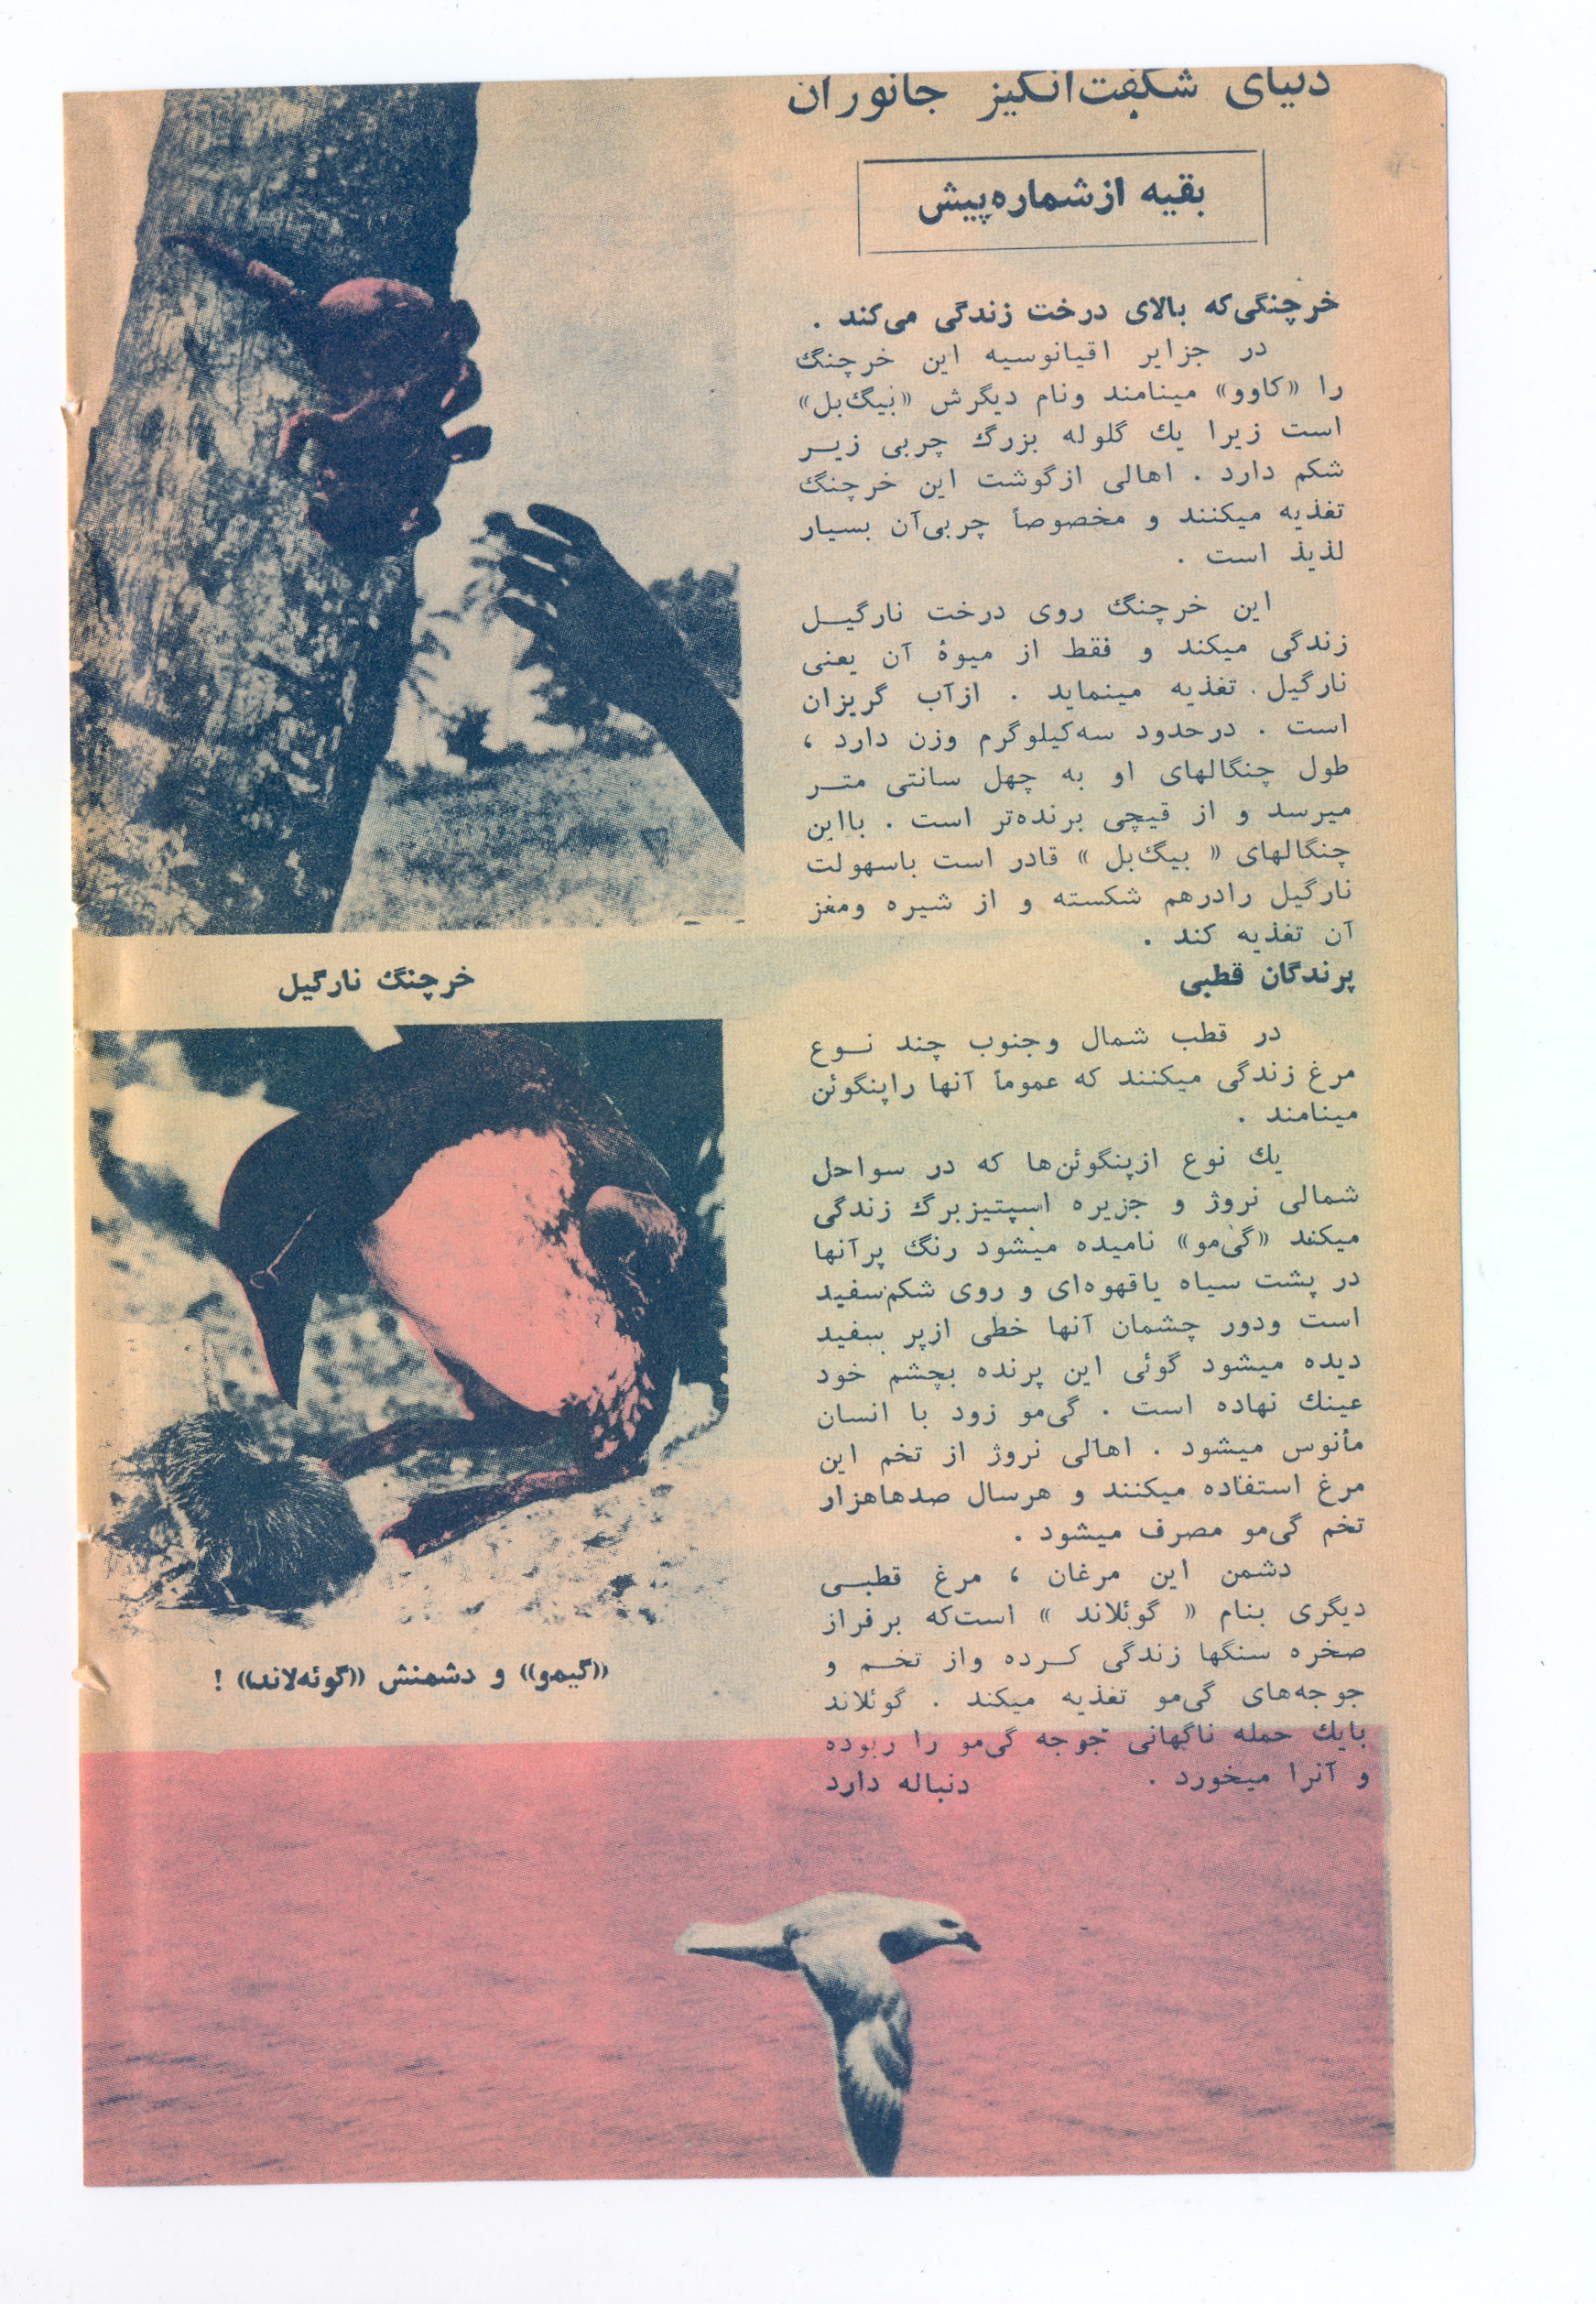 دنیای شگفت‌انگیز جانوران
بقیه از شماره پیش
خرچنگی‌که بالای درخت زندگی می‌کند .
در جزایر اقیانوسیه این خرچنگ
را «کاوو» مینامند ونام دیگرش «بیگ‌بل»
است زیرا یك گلوله بزرگ چربی زیــر
شکم دارد . اهالی ازگوشت این خرچنگ
تغذیه میکنند و مخصوصاً چربی‌آن بسیار
لذیذ است .
این خرچنگ روی درخت نارگیــل
زندگی میکند و فقط از میوهٔ آن یعنی
نارگیل تغذیه مینماید . ازآب گریزان
است . درحدود سه‌کیلوگرم وزن دارد ،
طول چنگالهای او به چهل سانتی متــر
میرسد و از قیچی برنده‌تر است . بااین
چنگالهای « بیگ‌بل » قادر است باسهولت
نارگیل رادرهم شکسته و از شیره ومغز
آن تغذیه کند .
پرندگان قطبی
در قطب شمال وجنوب چند نــوع
مرغ زندگی میکنند که عموماً آنها راپنگوئن
مینامند .
یك نوع ازپنگوئن‌ها که در سواحل
شمالی نروژ و جزیره اسپتیزبرگ زندگی
میکند «گی‌مو» نامیده میشود رنگ پرآنها
در پشت سیاه یاقهوه‌ای و روی شکم‌سفید
است ودور چشمان آنها خطی ازپر سفید
دیده میشود گوئی این پرنده بچشم خود
عینك نهاده است . گی‌مو زود با انسان
مأنوس میشود . اهالی نروژ از تخم این
مرغ استفاده میکنند و هرسال صدهاهزار
تخم گی‌مو مصرف میشود .
دشمن این مرغان ، مرغ قطبــی
دیگری بنام « گوئلاند » است‌که برفراز
صخره سنگها زندگی کــرده واز تخــم و
جوجه‌های گی‌مو تغذیه میکند . گوئلاند
بایك حمله ناگهانی جوجه گی‌مو را ربوده
و آنرا میخورد . دنباله دارد
خرچنگ نارگیل
«گیمو» و دشمنش «گوئه‌لاند» !